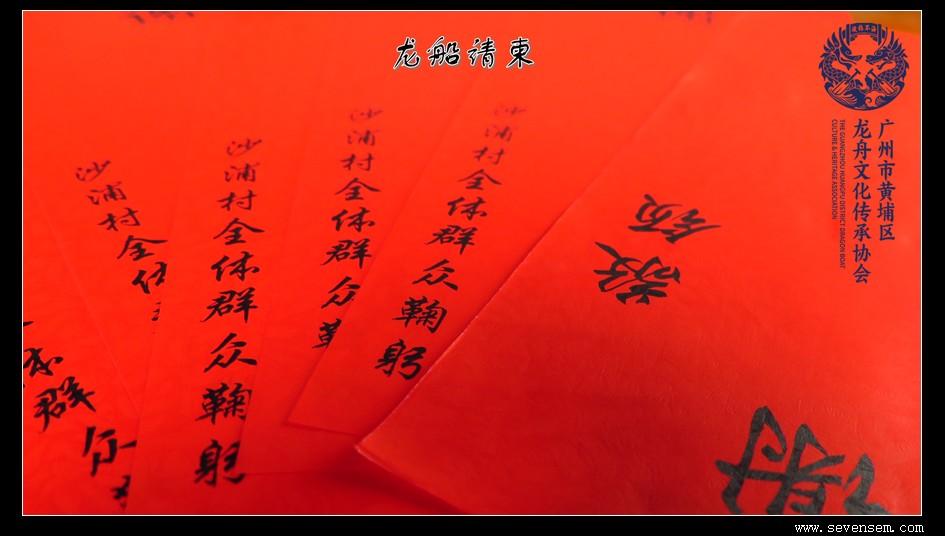 龙船请柬
体群众
沙浦村全体
沙浦村全体群众鞠躬
沙浦村全体群众
沙浦村全体群众鞠躬
敬领
谢
广州市黄埔区
龙舟文化传承协会
THE GUANGZHOU HUANGPU DISTRICT DRAGON BOAT
CULTURE & HERITAGE ASSOCIATION
www.sevensem.com